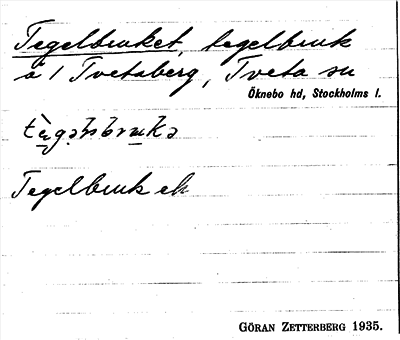 Tegelbruket, tegelbruk
å 1 Tvetaberg, Tveta sn
Öknebo hd, Stockholms l.
Tegelbruk ek
GÖRAN ZETTERBERG 1935.